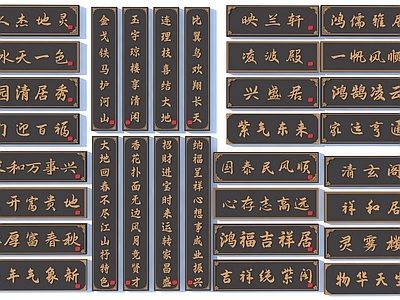 人杰地灵
水天一色
园清居秀
门迎百福
家和万事兴
开富贵地
厚富春秋
年气象新
金戈铁马护河山
玉宇琼楼享清闲
连理枝喜结大地
比翼鸟欢翔长天
大地回春不尽江山抒特色
香花扑面无边风月竞贤才
招财进宝时来运转家昌盛
纳福呈祥心想事成业振兴
映兰轩
凌波殿
兴盛居
紫气东来
国泰民风顺
心存志高远
鸿福吉祥居
吉祥绕紫阁
鸿儒雅居
一帆风顺
鸿鹄凌云
家运亨通
清玄阁
祥和居
灵雾楼
物华天宝